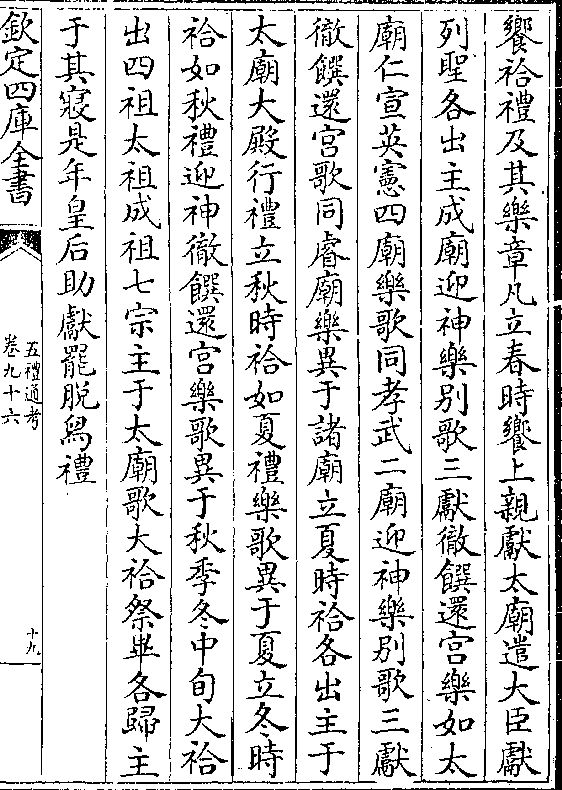 饗祫禮及其樂章凡立春時饗上親獻太廟遣大臣獻
列聖各出主成廟迎神樂別歌三獻徹饌還宮樂如太
廟仁宣英憲四廟樂歌同孝武二廟迎神樂別歌三獻
徹饌還宮歌同睿廟樂異于諸廟立夏時祫各出主于
太廟大殿行禮立秋時祫如夏禮樂歌異于夏立冬時
祫如秋禮迎神徹饌還宮樂歌異于秋季冬中旬大祫
出四祖太祖成祖七宗主于太廟歌大祫祭畢各歸主
于其寢是年皇后助獻罷脫舄禮
欽定四庫全書
五禮通考
卷九十六
十九